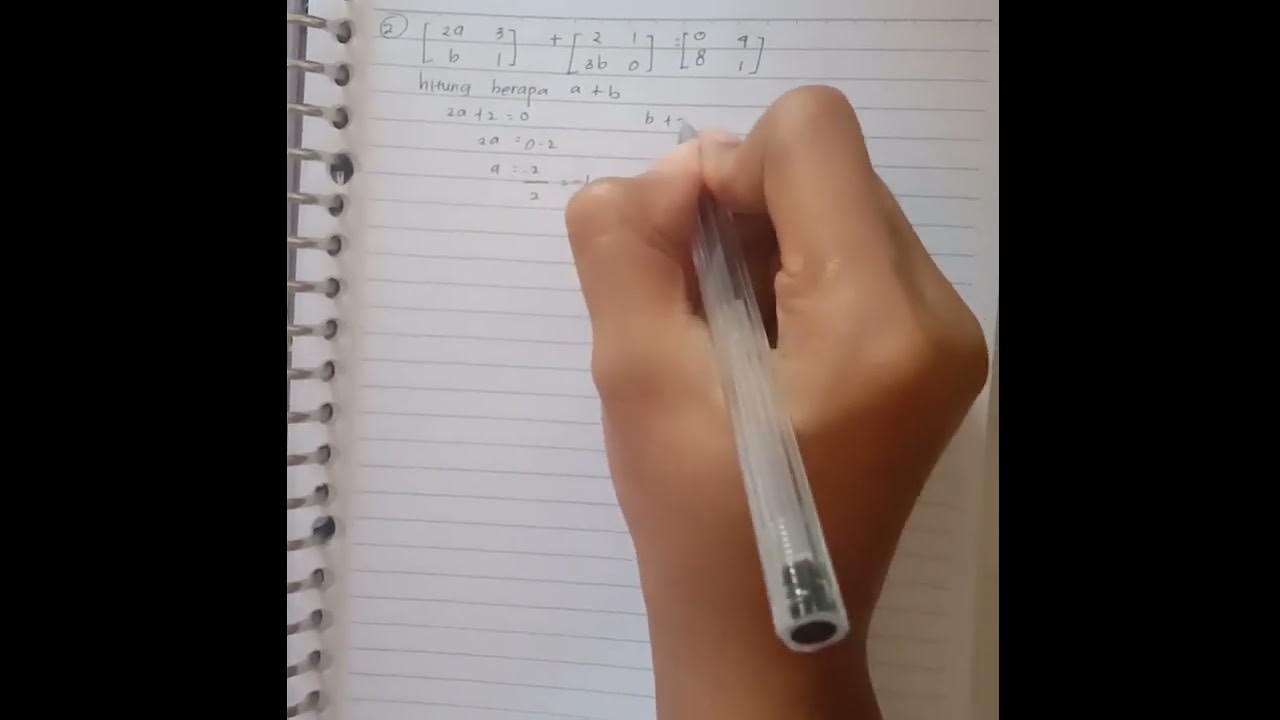 ② [2a 3] + [2 1] = [0 4]
[b 1] [3b 0] [8 1]
hitung berapa a + b
2a + 2 = 0 b +
2a = 0 - 2
a = -2/2 = -1